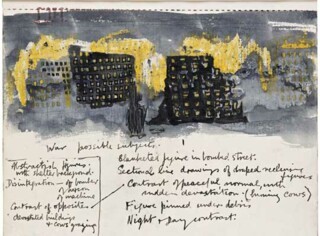 War possible subjects.
Abstraction figures
with shelter background.
Disintegration
of machine
Contrast of opposites
devastated buildings
& cows grazing
Blanketed figure in bombed street.
Sectional line drawings of draped reclining
figures
Contrast of peaceful normal, with
sudden devastation (burning cows)
Figure pinned under debris
Night & day contrast.